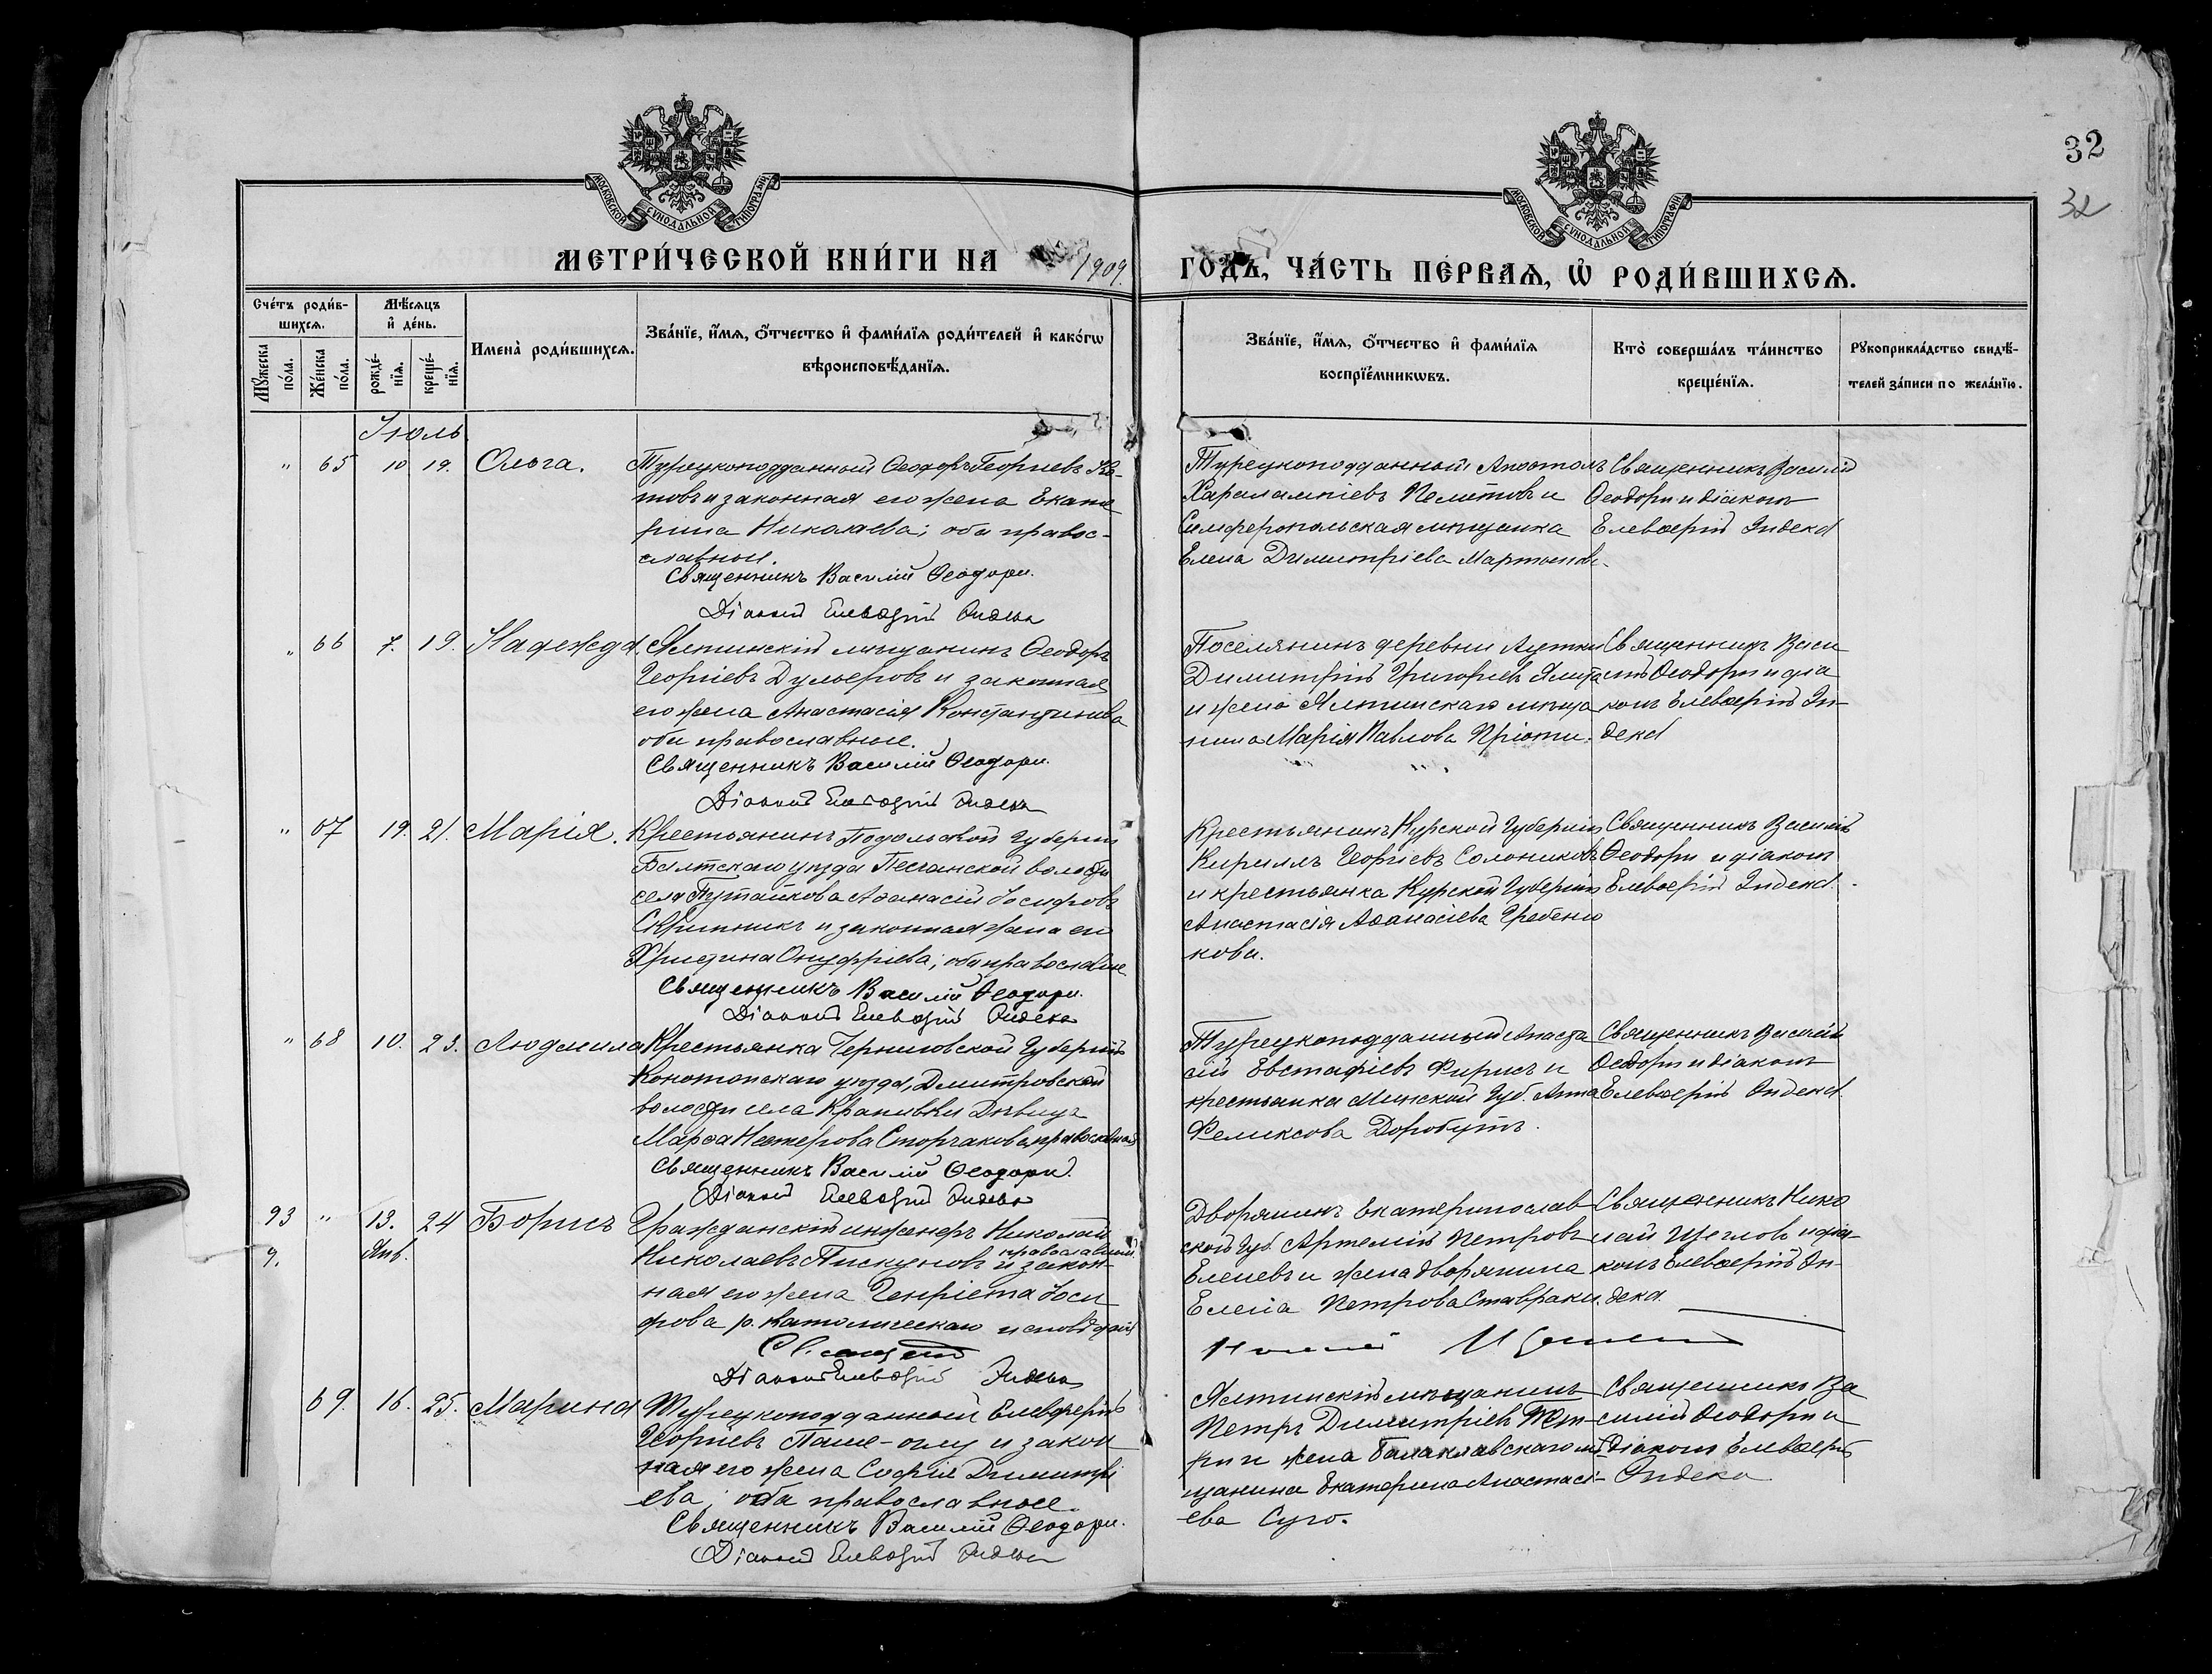 32
32
МОСКОВСКОЙ СѴНОДАЛЬНОЙ ТИПОГРАФІИ
МОСКОВСКОЙ СѴНОДАЛЬНОЙ ТИПОГРАФІИ
МЕТРИ́ЧЕСКОЙ КНИ́ГИ НА 1909.
ГОДЪ, ЧА́СТЬ ПЕ́РВАѦ, Ѡ҆ РОДИ́ВШИХСѦ.
Сче́тъ роди́в-
шихсѧ.
Мѣ́сѧцъ
и҆ де́нь.
Мꙋ́жеска
по́ла.
Же́нска
по́ла.
рожде́-
нїѧ.
креще́-
нїѧ.
Имена̀ роди́вшихсѧ.
Зва́нїе, и҆́мѧ, ѻ҆́тчество и҆ фами́лїѧ роди́телей и҆ како́гѡ
вѣроисповѣ́данїѧ.
Зва́нїе, и҆́мѧ, ѻ҆́тчество и҆ фами́лїѧ
воспрїе́мникѡвъ.
Кто̀ соверша́лъ та́инство
креще́нїѧ.
Рꙋкоприкла́дство свидѣ́-
телей за́писи по жела́нїю.
Іюль
" 65 10 19. Ольга.
Турецкоподданный Ѳеодоръ Георгіевъ
товъ и законная его жена Екате
рина Николаева; оба правос-
славные.
Священникъ Василій Ѳеодори.
Діаконъ Елевѳерій Индекъ
Турецкоподданный Апостолъ
Харалампіевъ и
Симферопольская мѣщанка
Елена Димитріева
Священникъ Василій
Ѳеодори и діаконъ
Елевѳерій Индекъ
" 66 7. 19. Надежда.
Ялтинскій мѣщанинъ Ѳеодоръ
Георгіевъ Дульеровъ и законная
его жена Анастасія Константинова
оба православные.
Священникъ Василій Ѳеодори.
Діаконъ Елевѳерій Индекъ
Поселянинъ деревни Аутки
Димитрій Григорьев
и жена Ялтинскаго мѣща
нина Марія Павлова
Священникъ Васи
лій Ѳеодори и діа
конъ Елевѳерій Ин-
декъ
" 67 19. 21. Марія.
Крестьянинъ Подольской Губерніи
Балтскаго уѣзда Песчанской волости
села Аѳанасій Іосифовъ
и законная жена его
Христина Онуфріева; оба православные
Священникъ Василій Ѳеодори.
Діаконъ Елевѳерій Индекъ
Крестьянинъ Курской Губерніи
Кириллъ Георгіевъ Солониковъ
и крестьянка Курской Губерніи
Анастасія Аѳанасіева Гребени
кова.
Священникъ Василій
Ѳеодори и діаконъ
Елевѳерій Индекъ.
" 68 10. 23. Людмила
Крестьянка Черниговской Губерніи
Конотопскаго уѣзда, Дмитровской
волости села Крапивки Дѣвица
Марѳа Нестерова Сторчакова, православная
Священникъ Василій Ѳеодори.
Діаконъ Елевѳерій Индекъ
Турецкоподданный Анаста
сій Евстафіевъ и
крестьянка Минской Губ. Анна
Феликсова
Священникъ Василій
Ѳеодори и діаконъ
Елевѳерій Индекъ.
93 " 13. 24 Борисъ
9. Янв.
Гражданскій инженеръ Николай
Николаевъ Пискуновъ православный и закон-
ная его жена Генріета Іоси
фова р. католическаго исповѣданія
Діаконъ Елевѳерій Индекъ
Дворянинъ Екатеринослав
ской Губ. Артемій Петровъ
Еленевъ и жена дворянина
Елена Петрова Ставраки.
Священникъ Нико
лай Щегловъ и діа-
конъ Елевѳерій Ин-
декъ.
69. 16. 25. Марина
Турецкоподданный Елевферій
Георгіевъ Паше-оглу и закон
ная его жена Софія Димитрі
ева; оба православные.
Священникъ Василій Ѳеодори.
Діаконъ Елевѳерій Индекъ
Ялтинскій мѣщанинъ
Петръ Димитріевъ
ри и жена Балаклавскаго мѣ
щанина Екатерина Анастасі-
ева
Священникъ Ва
силій Ѳеодори и
діаконъ Елевѳерій
Индекъ